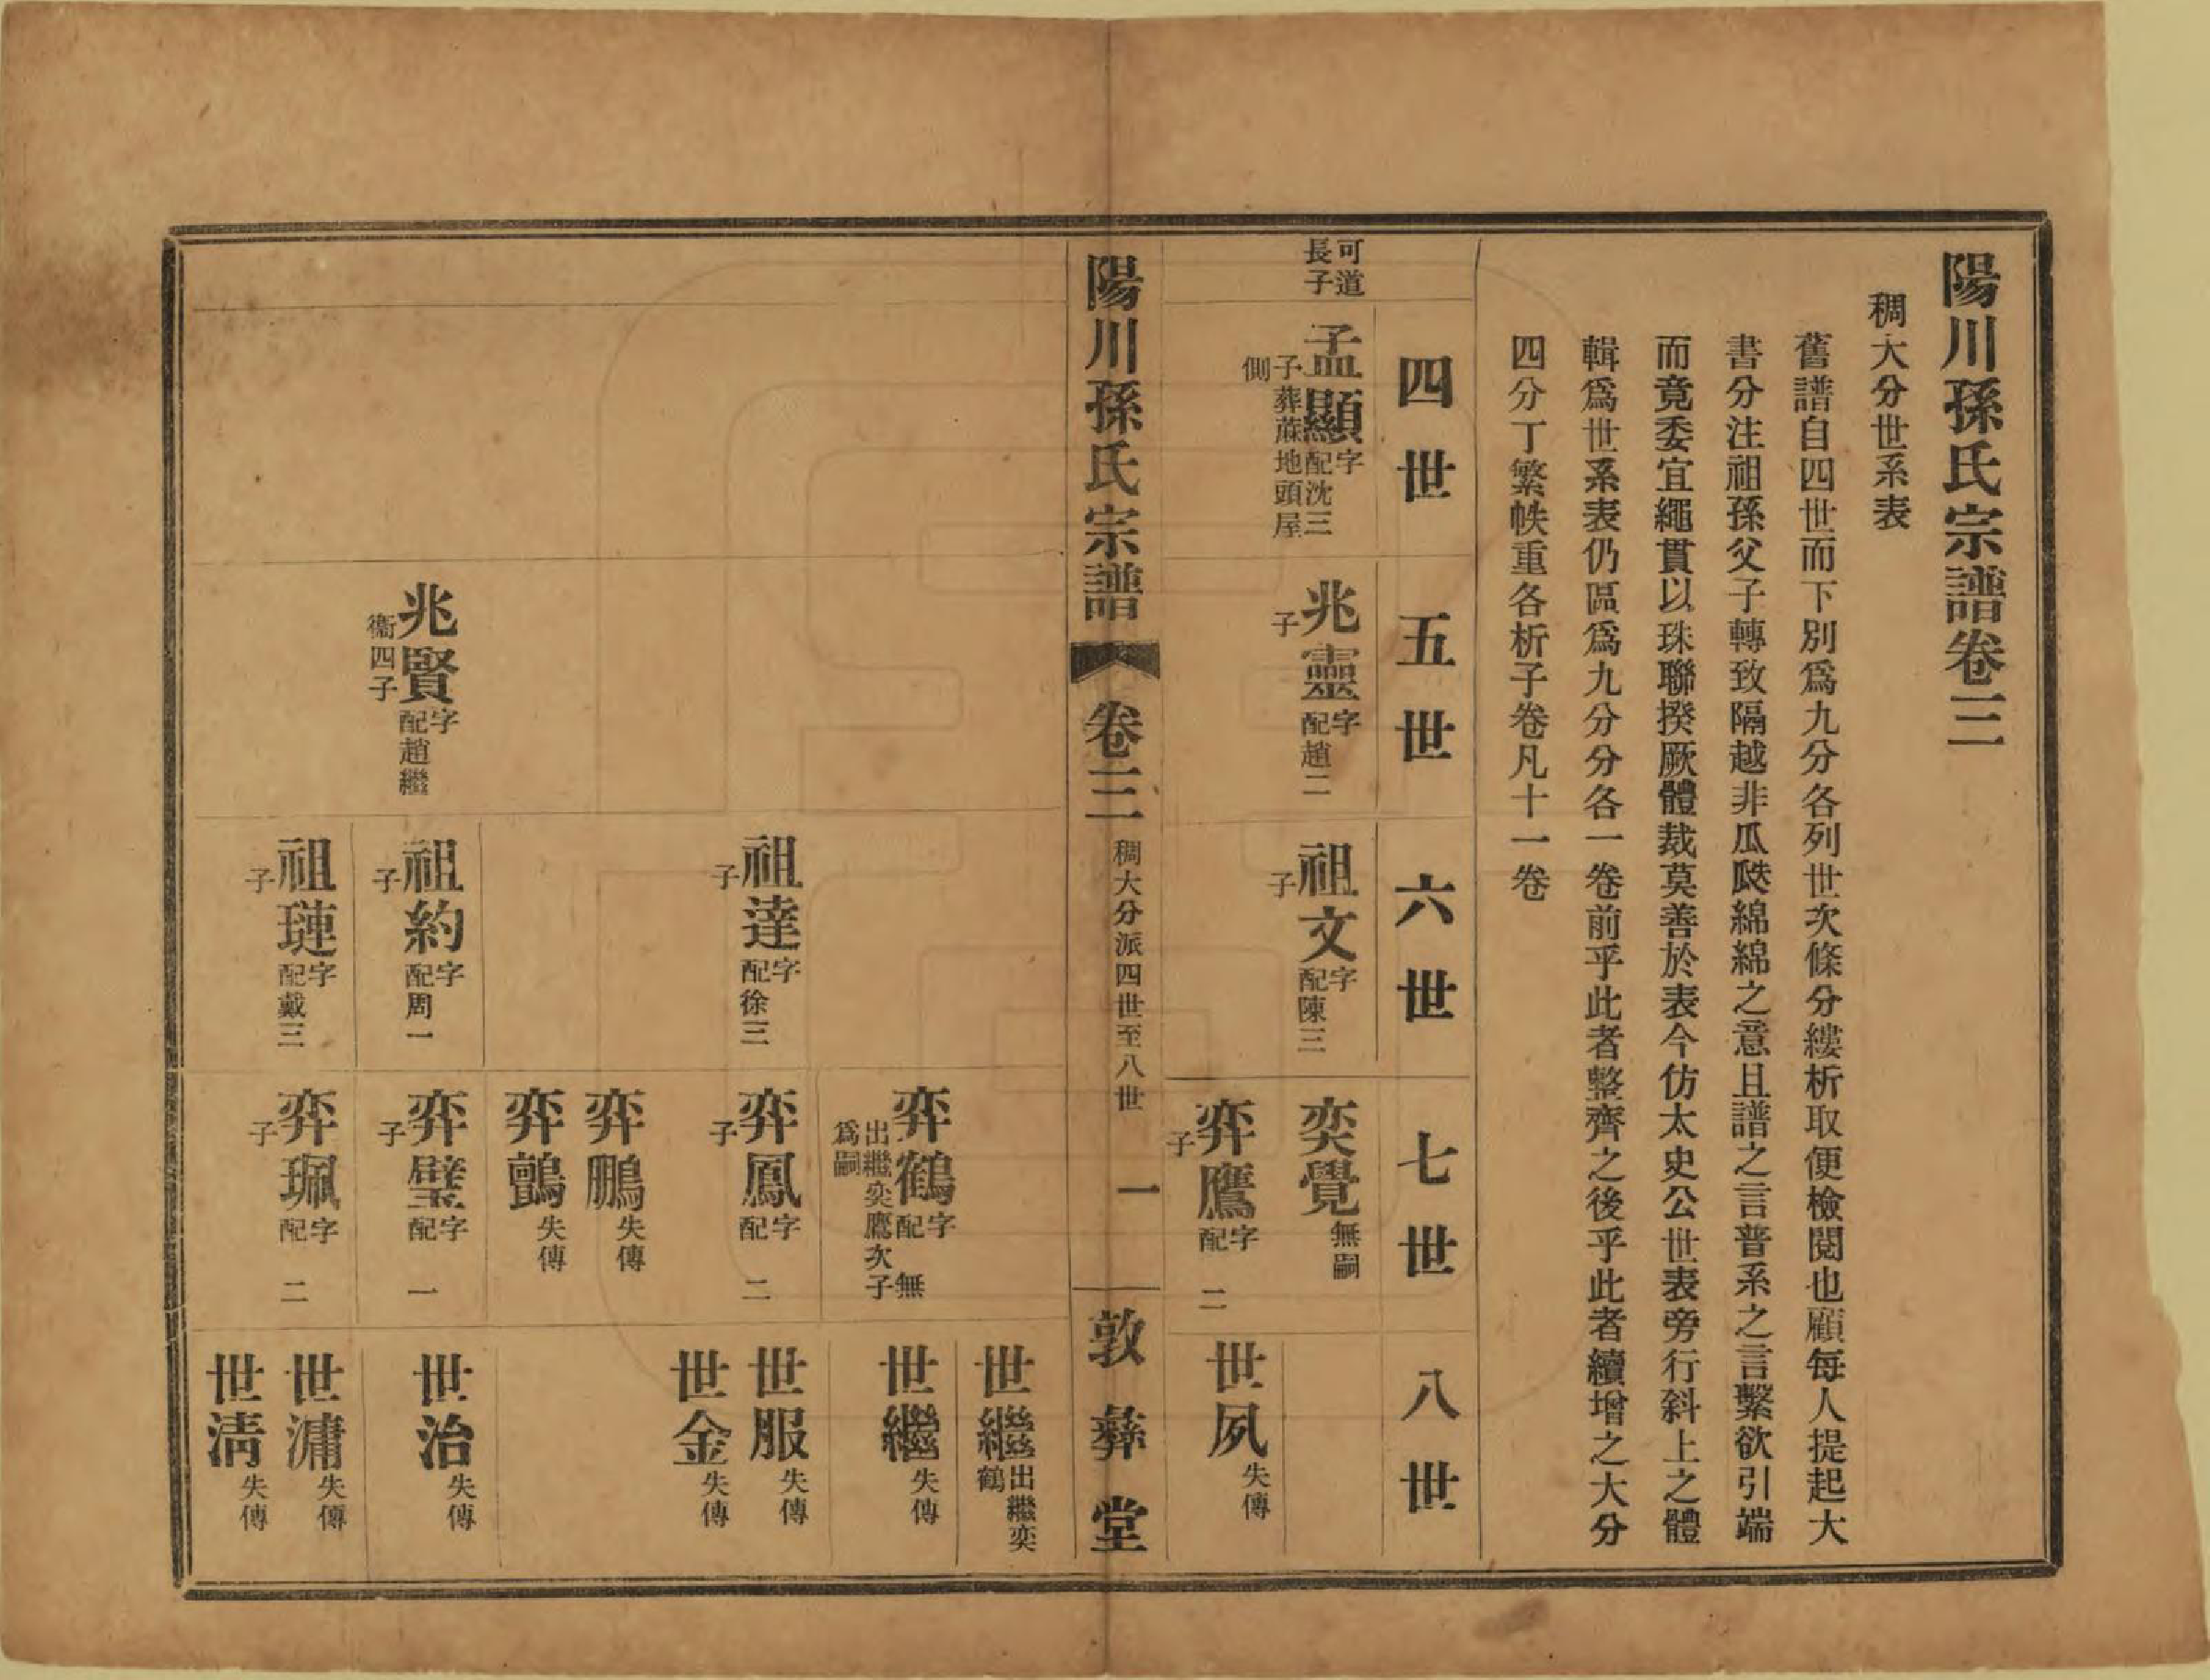 陽川孫氏宗譜卷三
稠大分世系表
舊譜自四世而下別爲九分各列世次條分縷析取便檢閱也顧每人提起大
書分注祖孫父子轉致隔越非瓜瓞綿綿之意且譜之言普系之言繫欲引端
而竟委宜繩貫以珠聯揆厥體裁莫善於表今仿太史公世表旁行斜上之體
輯爲世系表仍區爲九分分各一卷前乎此者整齊之後乎此者續增之大分
四分丁繁帙重各析子卷凡十一卷
四世
五世
六世
七世
八世
可道
長子
孟顯字
配沈三
子葬蔴地頭屋
側
兆靈字
配趙二
子
祖文字
配陳三
子
奕覺無嗣
弈鷹字
配 二
子
世夙失傳
陽川孫氏宗譜
卷三
稠大分派四世至八世
一
敦彝堂
世繼出繼奕
鶴
弈鶴字
配 無
出繼奕鷹次子
爲嗣
世繼失傳
祖達字
配徐三
子
弈鳳字
配 二
子
世服失傳
世金失傳
弈鵬失傳
弈鸇失傳
兆賢字
配趙繼
衞四子
祖約字
配周一
子
弈璧字
配 一
子
世治失傳
祖璉字
配戴三
子
弈珮字
配 二
子
世滽失傳
世淸失傳